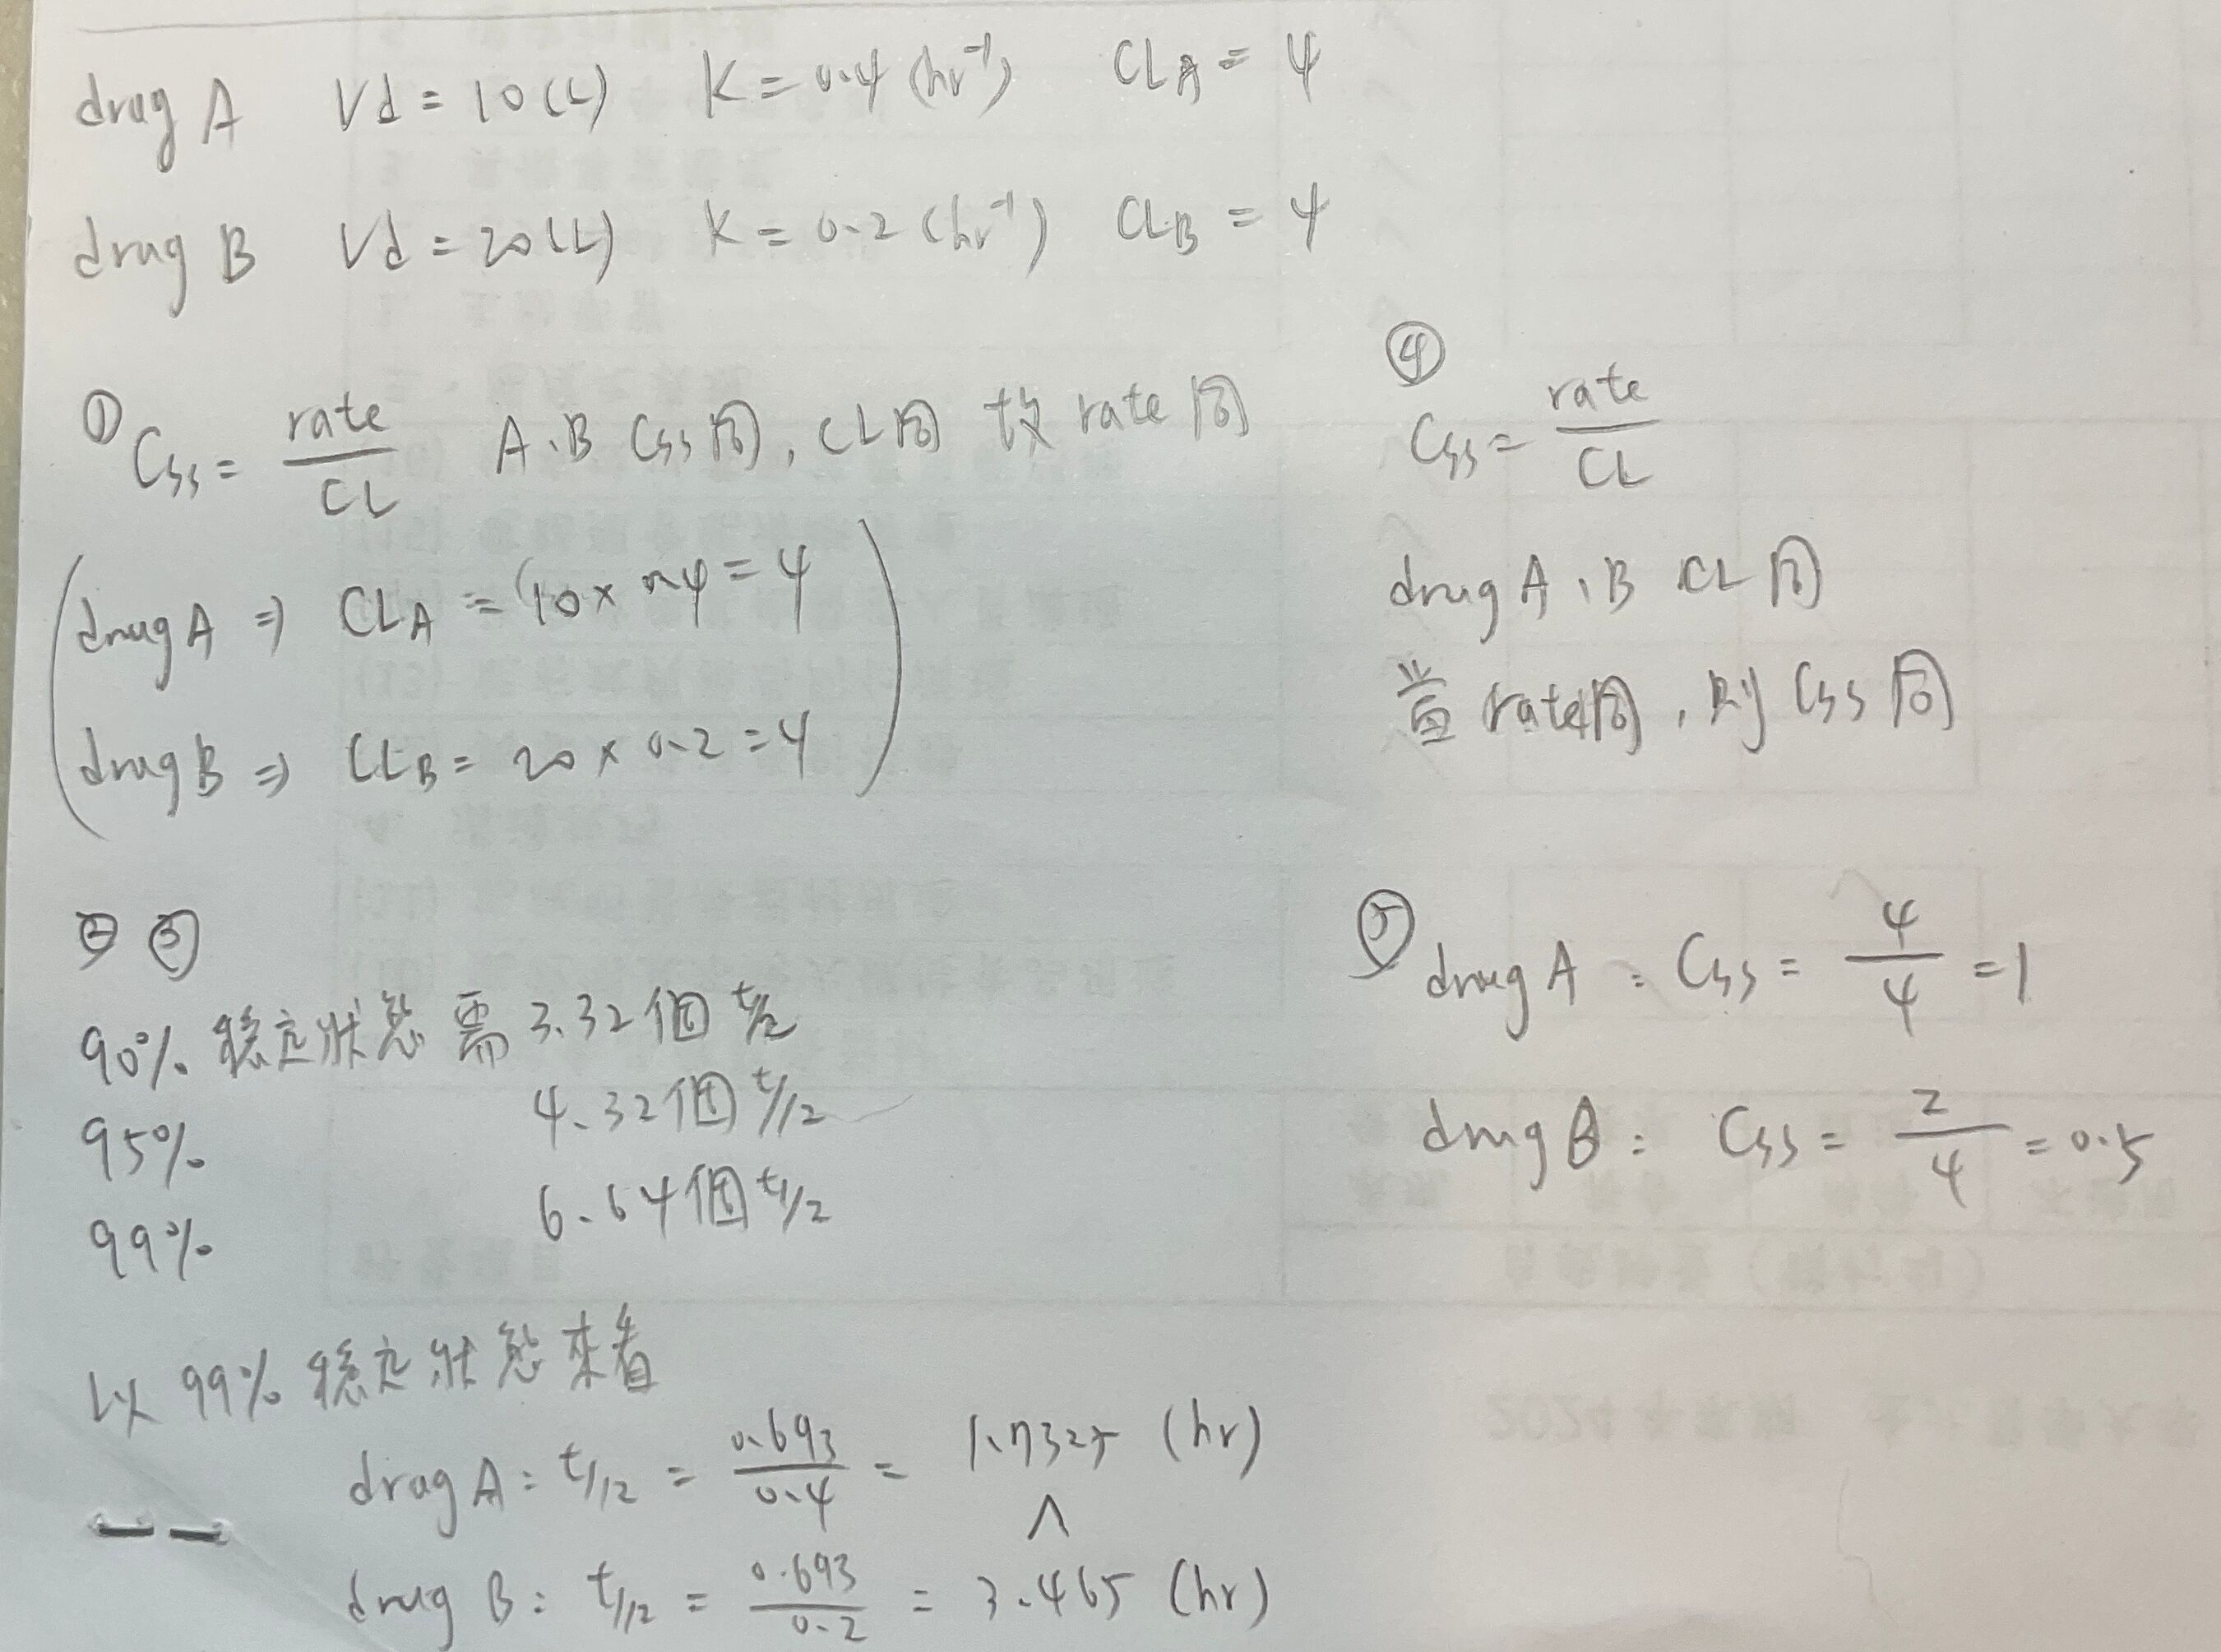 drug A Vd = 10 (L) K = 0.4 (hr⁻¹) CL_A = 4
drug B Vd = 20 (L) K = 0.2 (hr⁻¹) CL_B = 4
① Css = rate / CL A、B Css同, CL同 故 rate 同
drug A ⇒ CL_A = 10 × 0.4 = 4
drug B ⇒ CL_B = 20 × 0.2 = 4
② ③
90% 穩定狀態 需 3.32個 t1/2
95% 4.32個 t1/2
99% 6.64個 t1/2
以 99% 穩定狀態來看
drug A: t1/2 = 0.693 / 0.4 = 1.7325 (hr)
∧
drug B: t1/2 = 0.693 / 0.2 = 3.465 (hr)
④
Css = rate / CL
drug A、B CL同
當 rate同, 則 Css 同
⑤ drug A: Css = 4 / 4 = 1
drug B: Css = 2 / 4 = 0.5